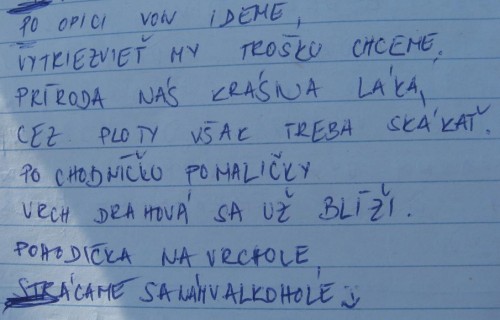 PO OPICI VON IDEME,
VYTRIEZVIEŤ MY TROŠKU CHCEME.
PRÍRODA NÁS KRÁSNA LÁKA,
CEZ PLOTY VŠAK TREBA SKÁKAŤ.
PO CHODNÍČKU POMALIČKY
VRCH DRAHOVÁ SA UŽ BLÍŽI.
POHODIČKA NA VRCHOLE,
STRÁCAME SA NÁM V ALKOHOLE